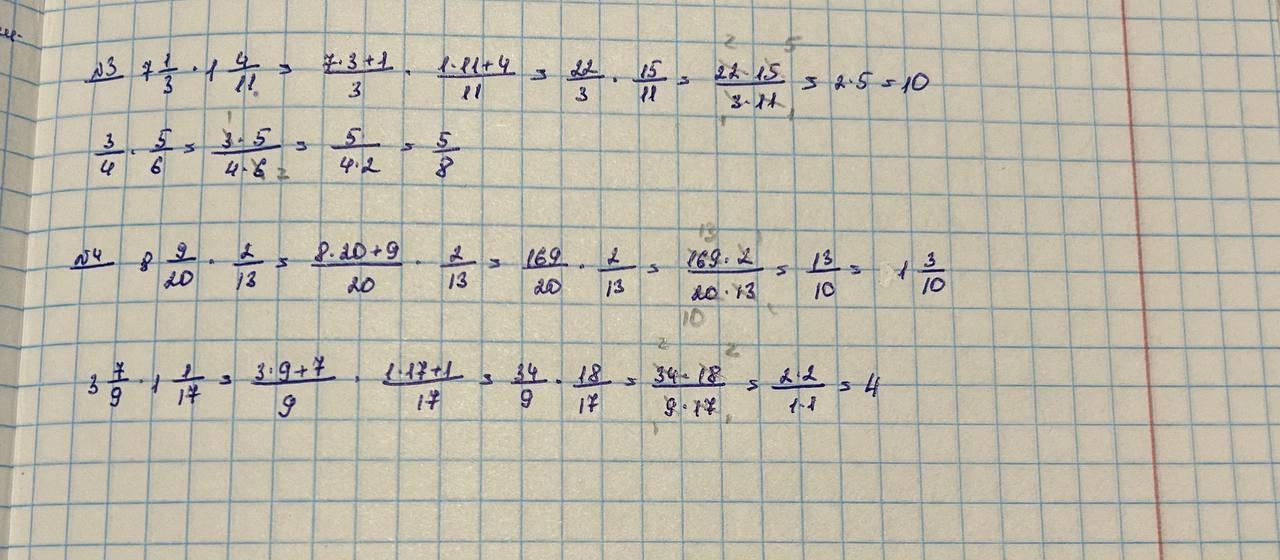 №3 7 1/3 · 1 4/11 = (7·3+1)/3 · (1·11+4)/11 = 22/3 · 15/11 = (22·15)/(3·11) = 2·5 = 10
3/4 · 5/6 = (3·5)/(4·6) = 5/(4·2) = 5/8
№4 8 9/20 · 2/13 = (8·20+9)/20 · 2/13 = 169/20 · 2/13 = (169·2)/(20·13) = 13/10 = 1 3/10
3 7/9 · 1 1/17 = (3·9+7)/9 · (1·17+1)/17 = 34/9 · 18/17 = (34·18)/(9·17) = (2·2)/(1·1) = 4